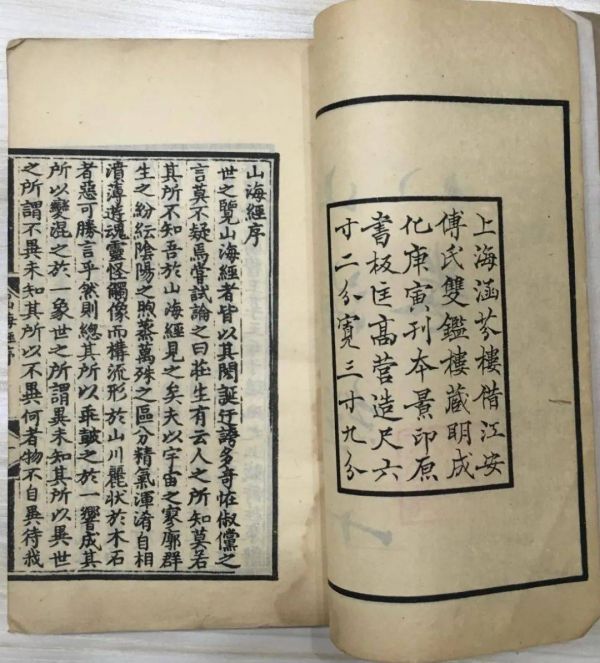 上海涵芬樓借江安
傅氏雙鑑樓藏明成
化庚寅刊本景印原
書板匡高營造尺六
寸二分寬三寸九分
山海經序
世之覽山海經者皆以其閎誕迂誇多奇怪俶儻之
言莫不疑焉嘗試論之曰莊生有云人之所知莫若
其所不知吾於山海經見之矣夫以宇宙之寥廓群
生之紛紜陰陽之煦蒸萬殊之區分精氣渾淆自相
濆薄遊魂靈怪觸像而構流形於山川麗狀於木石
者惡可勝言乎然則總其所以乖鼓之於一響成其
所以變混之於一象世之所謂異未知其所以異世
之所謂不異未知其所以不異何者物不自異待我
山海經序